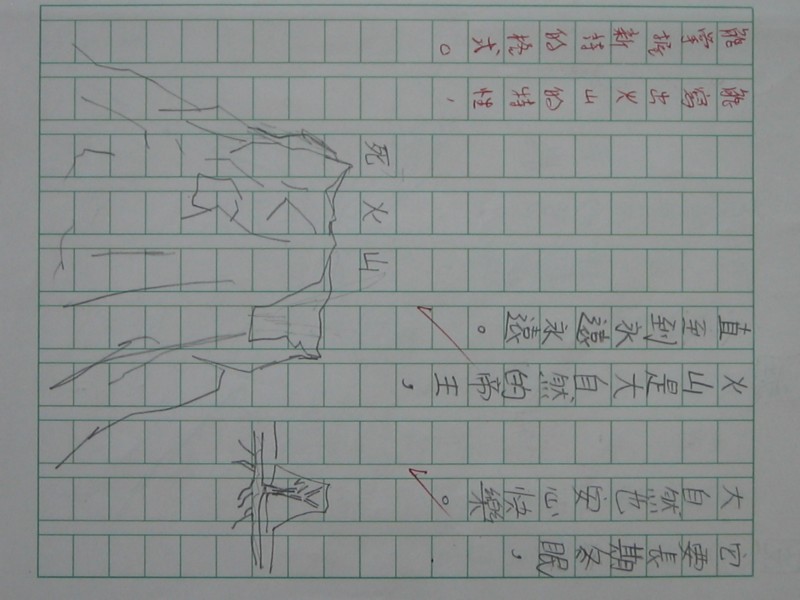 它要長期冬眠，
大自然也安心快樂。
火山是大自然的帝王，
直至到永遠永遠。
死火山
能寫出火山的特性，
能掌握新詩的格式。